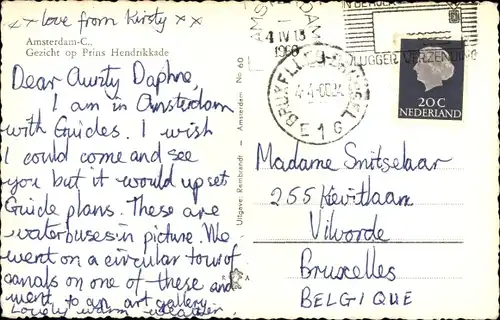 x x love from Kirsty x x
Amsterdam-C.,
Gezicht op Prins Hendrikkade
Dear Aunty Daphne,
I am in Amsterdam
with Guides. I wish
I could come and see
you but it would upset
Guide plans. These are
waterbuses in picture. We
went on a circular tour of
canals on one of these and
went to an art gallery.
Lovely warm weather.
Uitgave: Rembrandt - Amsterdam No 60
R A
AMSTERDAM
4 IV 13
1960
VLUGGER VERZENDING
BRUXELLES BRUSSEL
E1G
20C
NEDERLAND
Madame Smitselaar
255 Kevitlaan
Vilvorde
Bruxelles
BELGIQUE